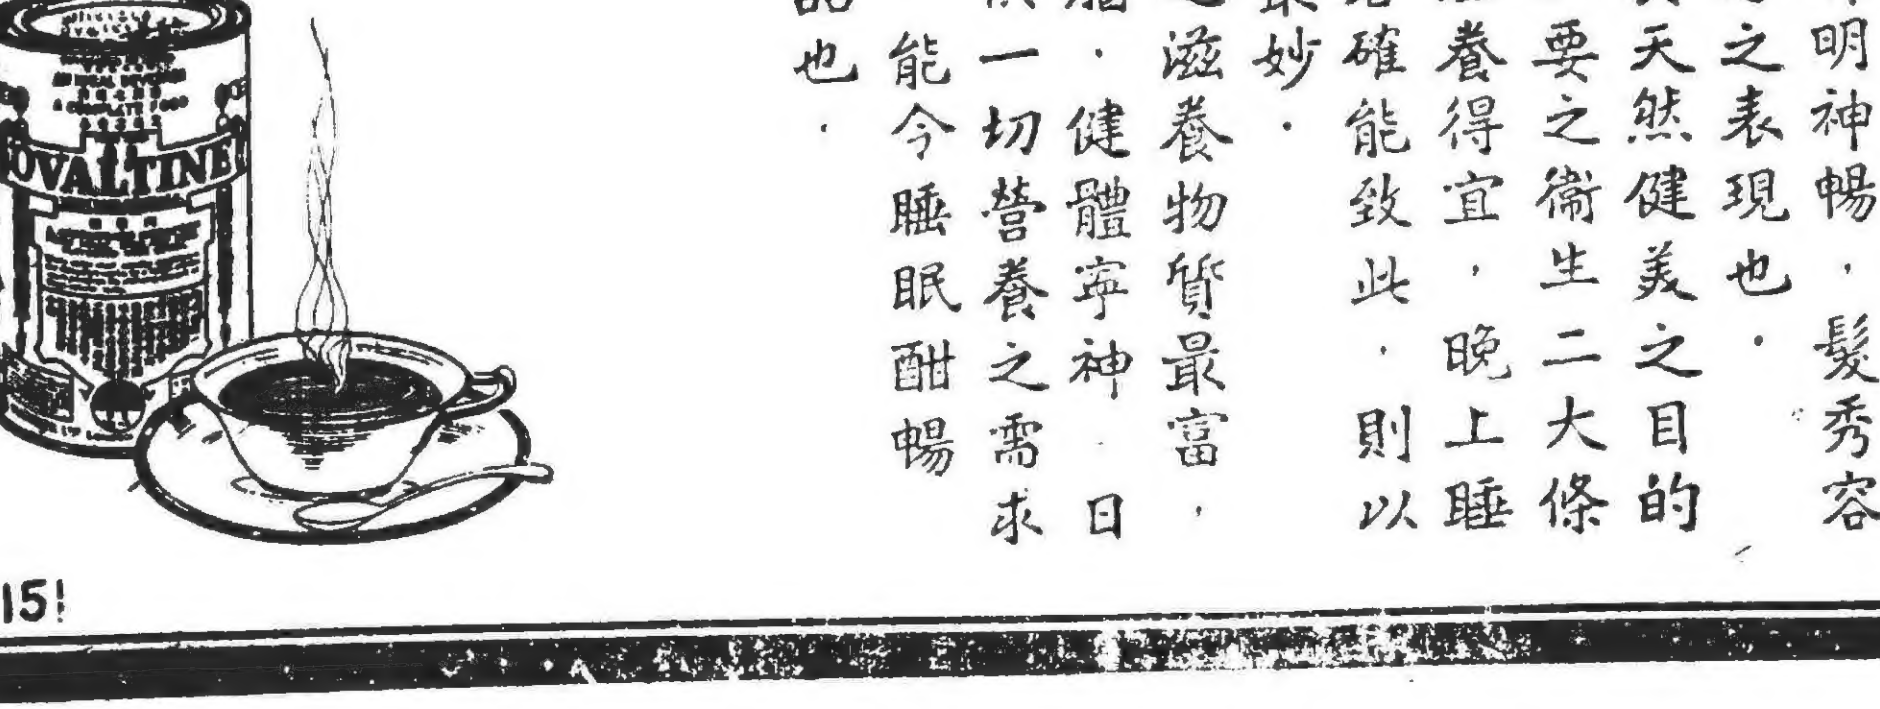 明神暢，髮秀容
之表現也．
天然健美之目的
要之衛生二大條
養得宜，晚上睡
確能致此．則以
妙．
滋養物質最富，
腦．健體寧神．日
供一切營養之需求
能令睡眠酣暢
品也．
OVALTINE
15!